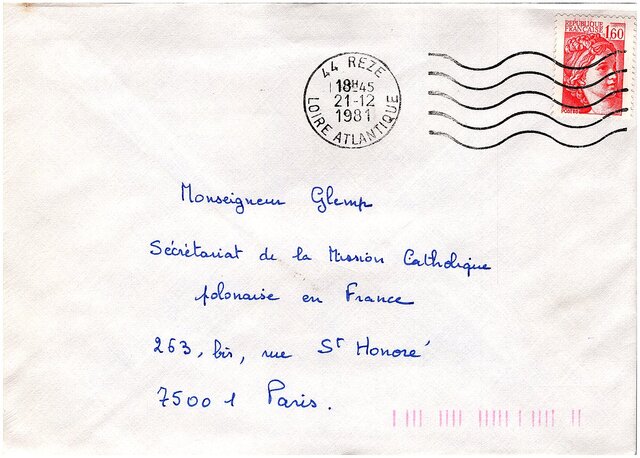 REPUBLIQUE
FRANÇAISE 1,60
POSTES
44 REZE
18H45
21-12
1981
LOIRE ATLANTIQUE
Monseigneur Glemp
Sécrétariat de la Mission Catholique
polonaise en France
263, bis, rue St Honoré
75001 Paris.